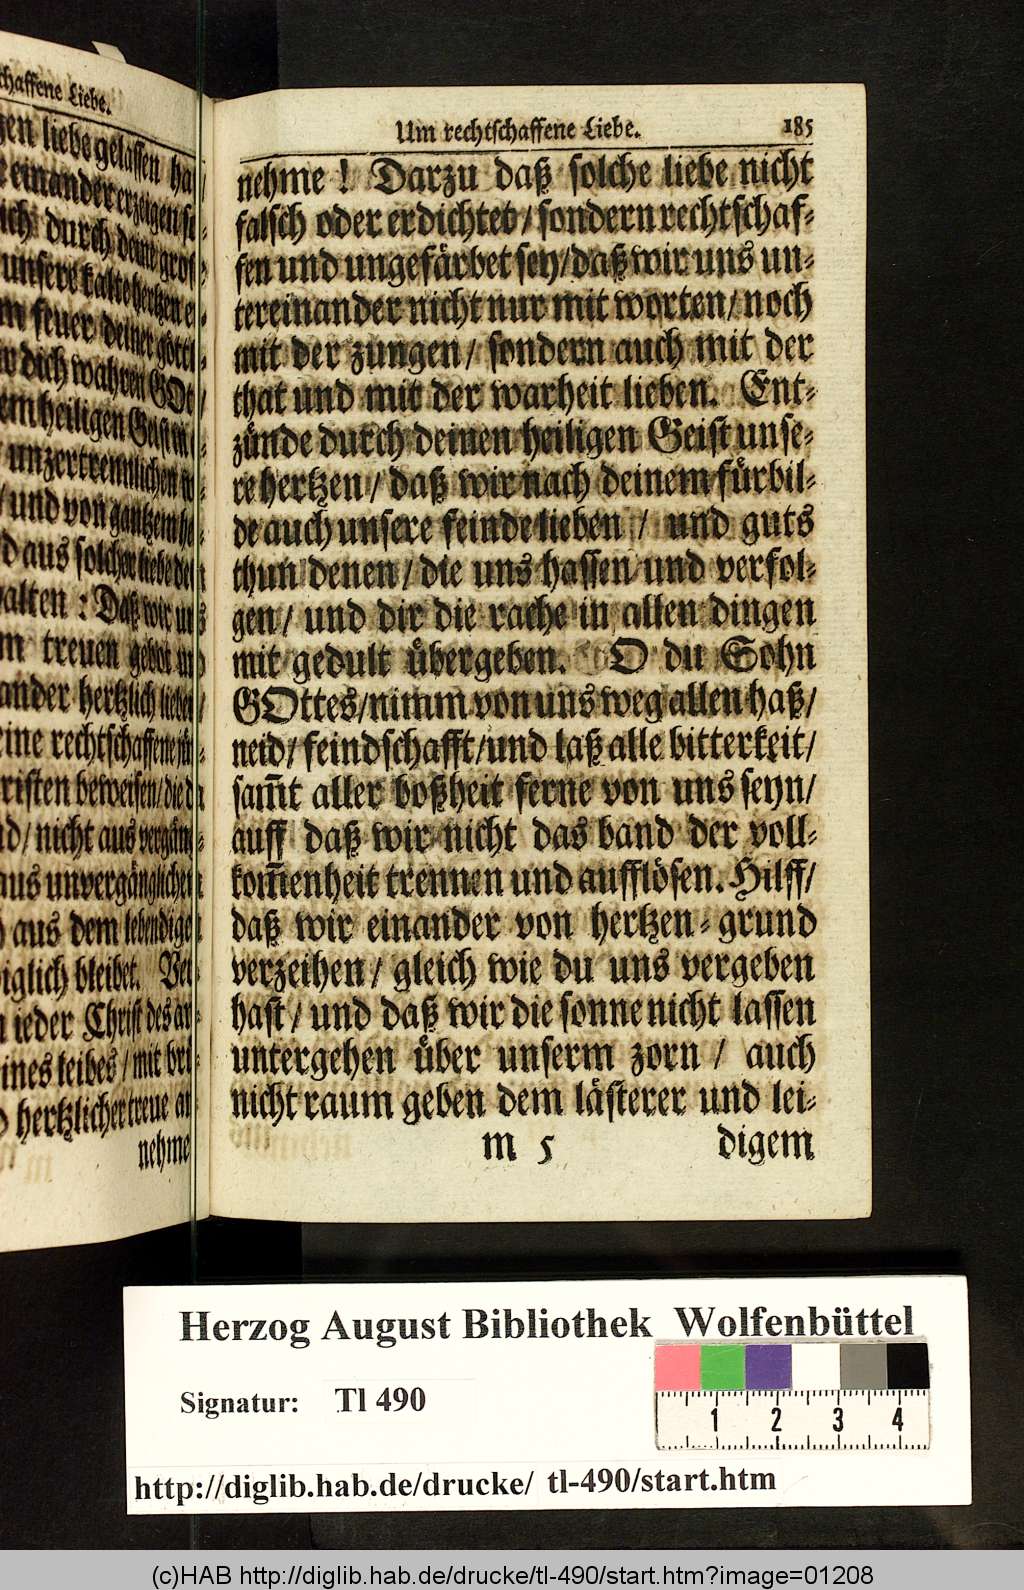 chaffene Liebe.
liebe gelassen
einander erzeigen
durch deine
unsere kalte hertzen
feuer deiner
dich wahren GOt
heiligen Geist
unzertrennlichen
und von gantzem
aus solcher liebe
alten : Daß wir
treuen gebot
ander hertzlich lieben
eine rechtschaffene
risten beweisen/ die
nicht aus vergäng
aus unvergänglichen
aus dem lebendige
iglich bleibet.
ieder Christ des
eines leibes / mit
hertzlicher treue an
nehme
Um rechtschaffene Liebe. 185
nehme ! Darzu daß solche liebe nicht
falsch oder erdichtet/ sondern rechtschaf-
fen und ungefärbet sey/ daß wir uns un-
tereinander nicht nur mit worten/ noch
mit der zungen/ sondern auch mit der
that und mit der warheit lieben. Ent-
zünde durch deinen heiligen Geist unse-
re hertzen/ daß wir nach deinem fürbil-
de auch unsere feinde lieben / und guts
thun denen/ die uns hassen und verfol-
gen/ und dir die rache in allen dingen
mit gedult übergeben. O du Sohn
GOttes/ nimm von uns weg allen haß/
neid/ feindschafft/ und laß alle bitterkeit/
sam̃t aller boßheit ferne von uns seyn/
auff daß wir nicht das band der voll-
kom̃enheit trennen und aufflösen. Hilff/
daß wir einander von hertzen-grund
verzeihen/ gleich wie du uns vergeben
hast/ und daß wir die sonne nicht lassen
untergehen über unserm zorn / auch
nicht raum geben dem lästerer und lei-
M 5 digem
Herzog August Bibliothek Wolfenbüttel
Signatur: Tl 490
1 2 3 4
http://diglib.hab.de/drucke/ tl-490/start.htm
(c)HAB http://diglib.hab.de/drucke/tl-490/start.htm?image=01208